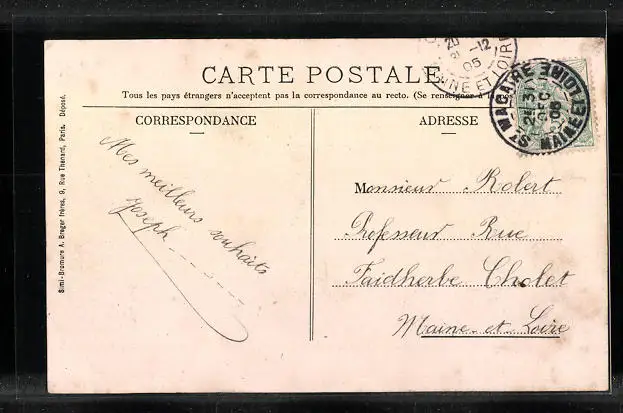 CARTE POSTALE
Tous les pays étrangers n'acceptent pas la correspondance au recto. (Se renseigner à
CORRESPONDANCE
ADRESSE
Mes meilleurs souhaits
Joseph
Monsieur Robert
Professeur Rue
Faidherbe Cholet
Maine-et-Loire
Simi-Bromure A. Breger frères, 9, Rue Thenard, Paris. Déposé.
20
-12
05
NE ET LOIRE
ST MACAIRE
31
DEC
05
MAINE ET LOIRE